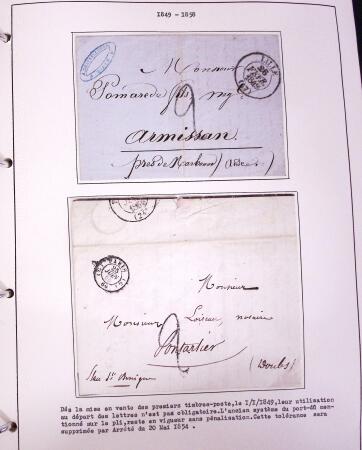 1849 - 1858
LILLE
Monsieur
Pomarede fils
Armissan
près de Narbonne (Aude)
PARIS
Monsieur
Monsieur Loiseau, notaire
Pontarlier
(Doubs)
Dès la mise en vente des premiers timbres-poste, le I/I/I849, leur utilisation
au départ des lettres n'est pas obligatoire. L'ancien système du port-dû men-
tionné sur le pli, reste en vigueur sans pénalisation. Cette tolérance sera
supprimée par Arrêté du 20 Mai I854.